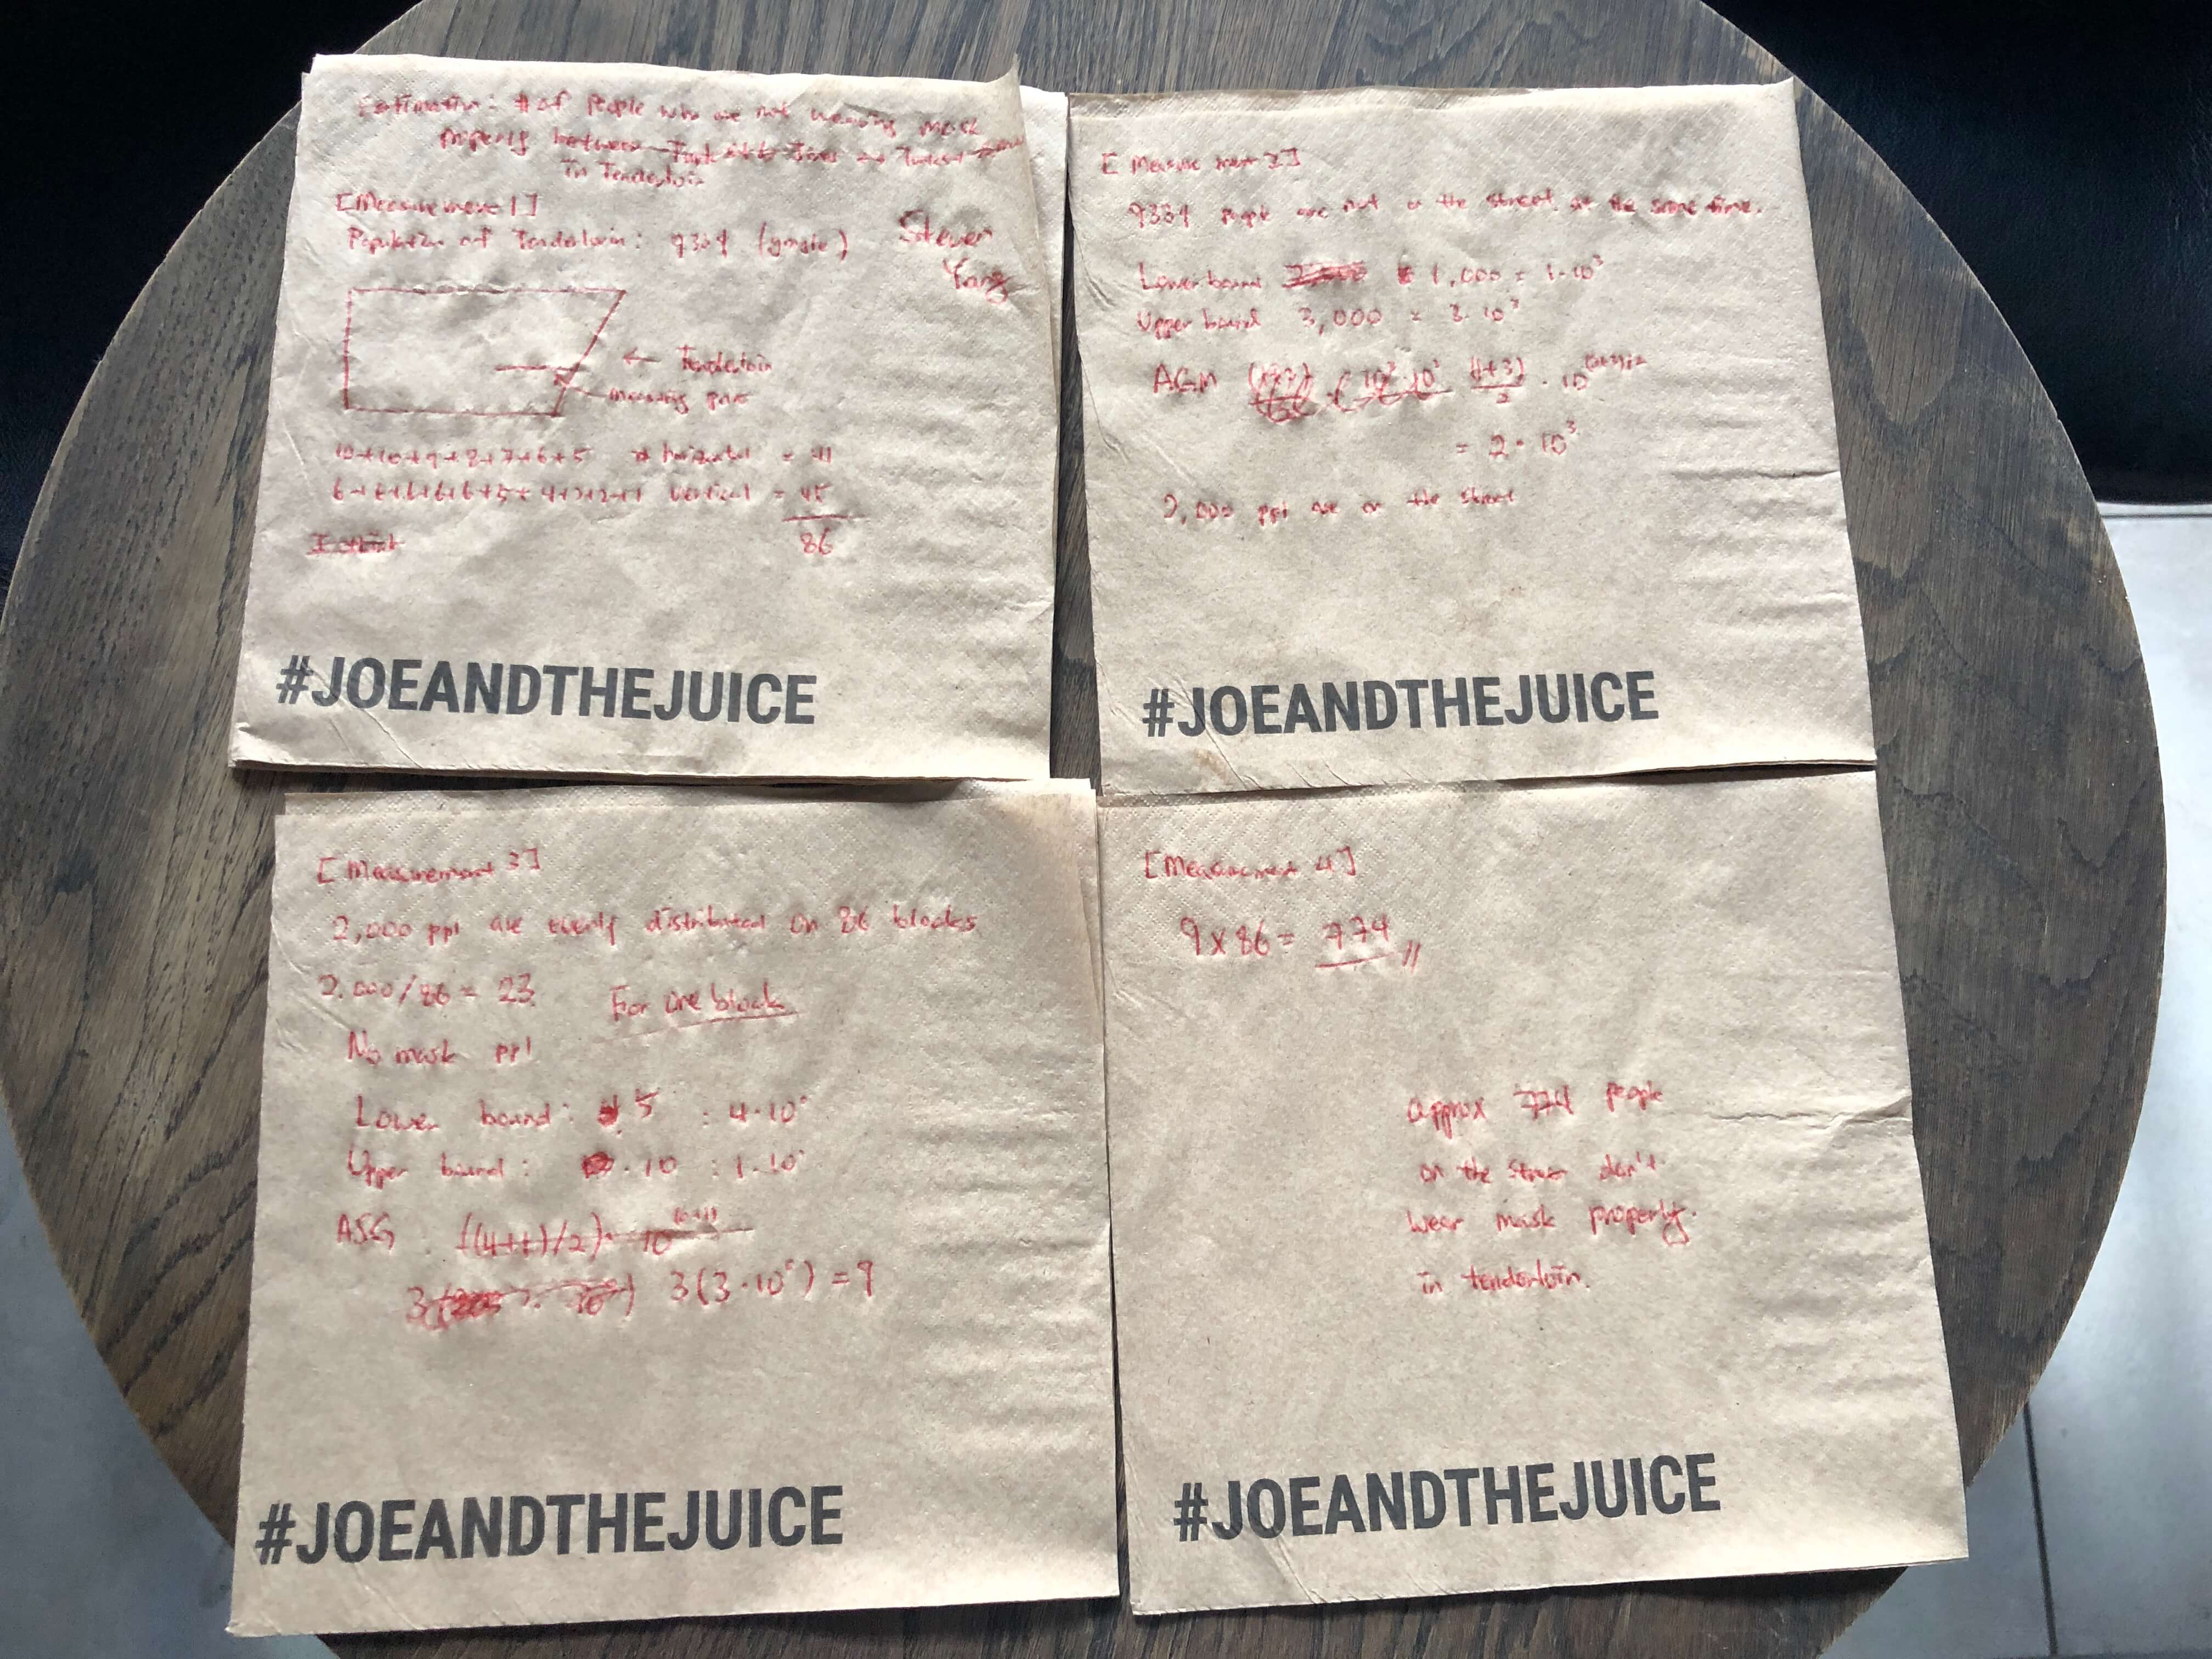 Estimation: # of people who are not wearing mask
properly between
in Tenderloin
[Measurement 1]
Population of Tenderloin: 9334 (google)
Steven
Yang
← Tenderloin
measuring
10+10+9+8+7+6+5 horizontal = 41
vertical = 45
86
I think
#JOEANDTHEJUICE
[Measurement 2]
9334 people are not on the street at the same time.
Lower bound 1,000 = 1·10³
Upper bound 3,000 = 3·10³
AGM (1+3)/2 · 10
= 2·10³
2,000 ppl are on the street
#JOEANDTHEJUICE
[Measurement 3]
2,000 ppl are evenly distributed on 86 blocks
2,000/86 = 23 For one block
No mask ppl
Lower bound: 5 : 4·10⁰
Upper bound: 10 : 1·10¹
((4+1)/2)· 10
3(3·10⁰) = 9
#JOEANDTHEJUICE
[Measurement 4]
9x86 = 774
approx 774 people
on the street don't
wear mask properly.
in tenderloin.
#JOEANDTHEJUICE